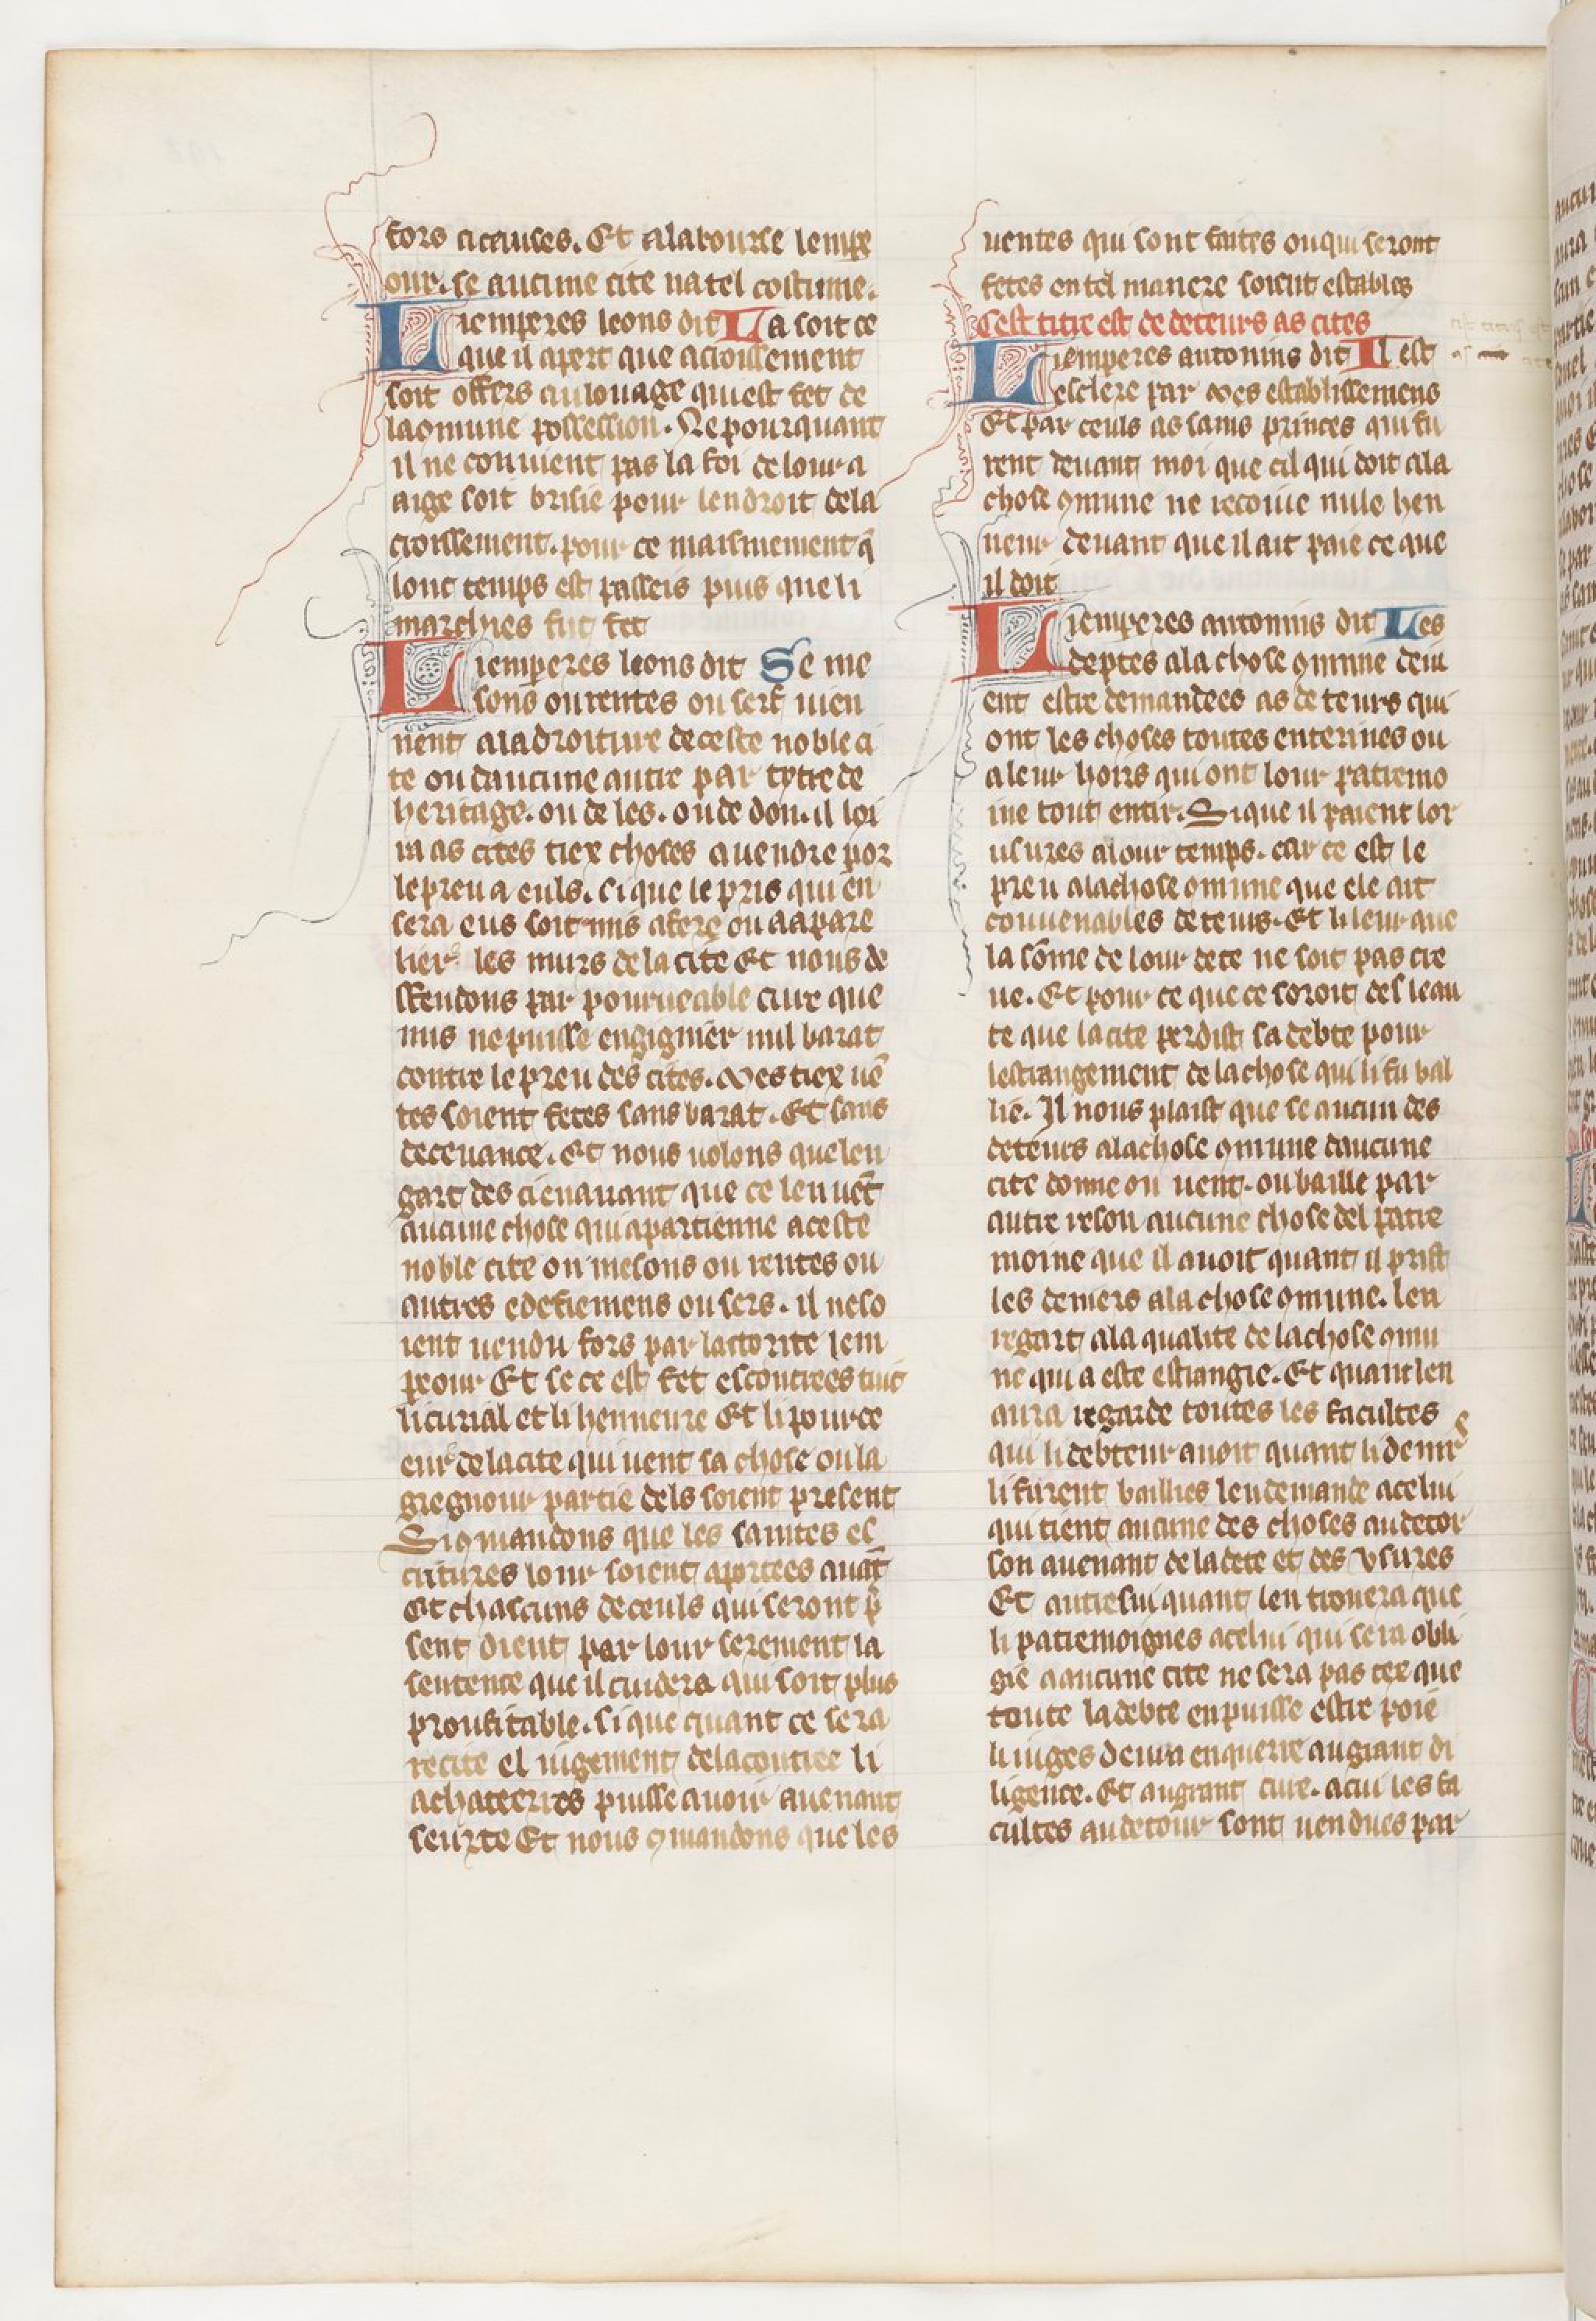 fors a causes. Et a la bourse lempe
our. se aucune cite na tel costume.
Li emperes leons dit La soit ce
que il apert que acroissement
soit offers au louage qui est fet de
la ꝯmune possession. Ne pour quant
il ne couuient pas la foi de lour a
aige soit brisie pour lendroit de la
croissement. pour ce maismement q̄
lonc temps est passeis puis que li
marchies fut fet
Li emperes leons dit Se me
sons ou rentes ou serf uien
nent a la droiture de ceste noble ci
te ou daucune autre par tytre de
heritage. ou de les. ou de don. il loi
ra as cites tiex choses a uendre por
le preu a euls. si que le pris qui en
sera eus soit mis a fere ou a apare
lier les murs de la cite Et nous de
ffendons par pourueable cure que
nus ne puisse engignier nul barat
contre le preu des cites. Mes tiex uē
tes soient fetes sans barat. Et sans
deceuance. Et nous uolons que len
gart des ci en auant que ce len uēt
aucune chose qui apartienne a ceste
noble cite ou mesons ou rentes ou
autres edefiemens ou sers. il ne so
ient uendu fors par lactorite lem
peour Et se ce est fet es contrees tuit
li curial et li henneure Et li pource
eur de la cite qui uent sa chose ou la
gregnour partie dels soient present
Si ꝯmandons que les saintes es
critures lour soient aportees auāt
Et chascuns de ceuls qui seront p̄
sent dient par lour serement la
sentence que il cuidera qui soit plus
proufitable. si que quant ce sera
recite el iugement de la contree li
achateeres puisse auoir auenant
seurte Et nous ꝯmandons que les
uentes qui sont faites ou qui seront
fetes en tel manere soient estables
Cest titre est de deteurs as cites
Li emperes antonins dit Il est
esclere par mes establissemens
Et par ceuls as sains princes qui fu
rent deuant moi que cil qui doit a la
chose ꝯmune ne recoiue nule hen
neur deuant que il ait paie ce que
il doit
Li emperes antonins dit Les
deptes a la chose ꝯmune deiu
ent estre demandees as deteurs qui
ont les choses toutes enterines ou
a leur hoirs qui ont lour patremo
ine tout entir. Si que il paient lor
usures a lour temps. car ce est le
preu a la chose ꝯmune que ele ait
couuenables deteurs. Et li leur que
la sōme de lour dete ne soit pas cre
ue. Et pour ce que ce seroit desleau
te que la cite perdist sa debte pour
lestrangement de la chose qui li fu bal
lie. Il nous plaist que se aucun des
deteurs a la chose ꝯmune daucune
cite donne ou uent. ou baille par
autre reson aucune chose del patre
moine que il auoit quant il prist
les deniers a la chose ꝯmune. len
regart a la qualite de la chose ꝯmu
ne qui a este estrangie. Et quant len
aura regarde toutes les facultes
qui li debteur auoit quant li denir
li furent baillies len demande a celui
qui tient aucune des choses au detor
son auenant de la dete et des vsures
Et autresui quant len trouera que
li patremoignes a celui qui sera obli
gie a aucune cite ne sera pas tex que
toute la debte en puisse estre poie
li iuges deura enquerre au grant di
ligence. Et au grant cure. a cui les fa
cultes au detour sont uendues par